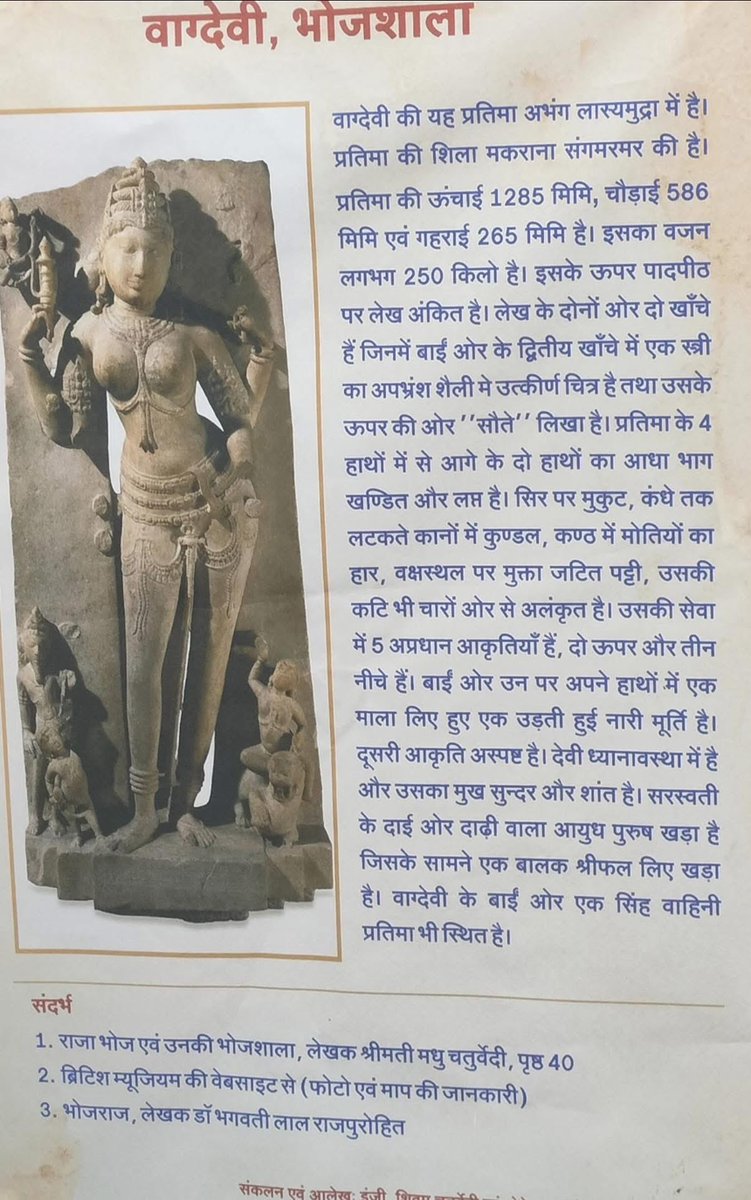 वाग्देवी, भोजशाला
वाग्देवी की यह प्रतिमा अभंग लास्यमुद्रा में है।
प्रतिमा की शिला मकराना संगमरमर की है।
प्रतिमा की ऊंचाई 1285 मिमि, चौड़ाई 586
मिमि एवं गहराई 265 मिमि है। इसका वजन
लगभग 250 किलो है। इसके ऊपर पादपीठ
पर लेख अंकित है। लेख के दोनों ओर दो खाँचे
हैं जिनमें बाईं ओर के द्वितीय खाँचे में एक स्त्री
का अपभ्रंश शैली मे उत्कीर्ण चित्र है तथा उसके
ऊपर की ओर ''सौते'' लिखा है। प्रतिमा के 4
हाथों में से आगे के दो हाथों का आधा भाग
खण्डित और लप्त है। सिर पर मुकुट, कंधे तक
लटकते कानों में कुण्डल, कण्ठ में मोतियों का
हार, वक्षस्थल पर मुक्ता जटित पट्टी, उसकी
कटि भी चारों ओर से अलंकृत है। उसकी सेवा
में 5 अप्रधान आकृतियाँ हैं, दो ऊपर और तीन
नीचे हैं। बाईं ओर उन पर अपने हाथों में एक
माला लिए हुए एक उड़ती हुई नारी मूर्ति है।
दूसरी आकृति अस्पष्ट है। देवी ध्यानावस्था में है
और उसका मुख सुन्दर और शांत है। सरस्वती
के दाई ओर दाढ़ी वाला आयुध पुरुष खड़ा है
जिसके सामने एक बालक श्रीफल लिए खड़ा
है। वाग्देवी के बाईं ओर एक सिंह वाहिनी
प्रतिमा भी स्थित है।
संदर्भ
1. राजा भोज एवं उनकी भोजशाला, लेखक श्रीमती मधु चतुर्वेदी, पृष्ठ 40
2. ब्रिटिश म्यूजियम की वेबसाइट से (फोटो एवं माप की जानकारी)
3. भोजराज, लेखक डॉ भगवती लाल राजपुरोहित
संकलन एवं आलेख: इंजी.